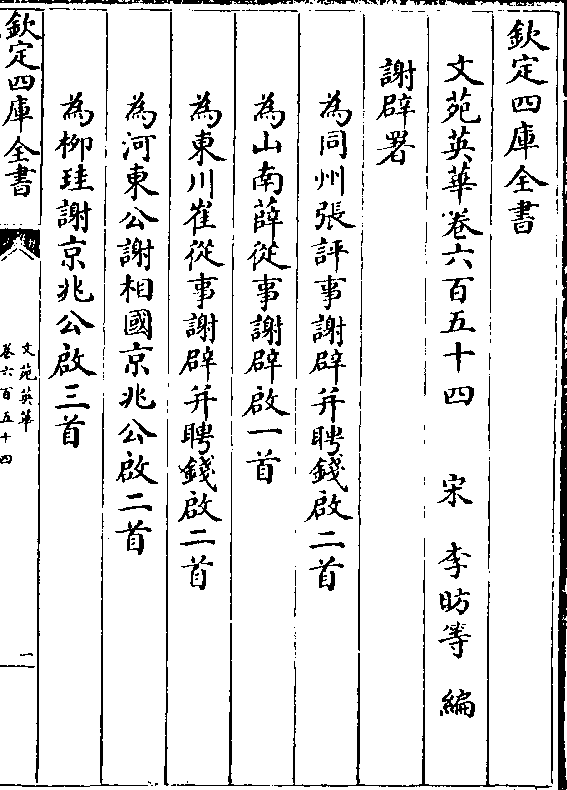 欽定四庫全書
文苑英華卷六百五十四 宋 李昉等 編
謝辟署
為同州張評事謝辟并聘錢啟二首
為山南薛從事謝辟啟一首
為東川崔從事謝辟并聘錢啟二首
為河東公謝相國京兆公啟二首
為柳珪謝京兆公啟三首
欽定四庫全書
文苑英華
卷六百五十四
一